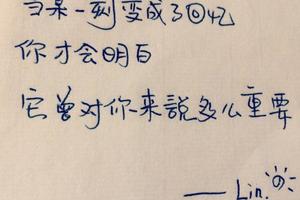 当某一刻变成了回忆
你才会明白
它曾对你来説多么重要
—— Lin.